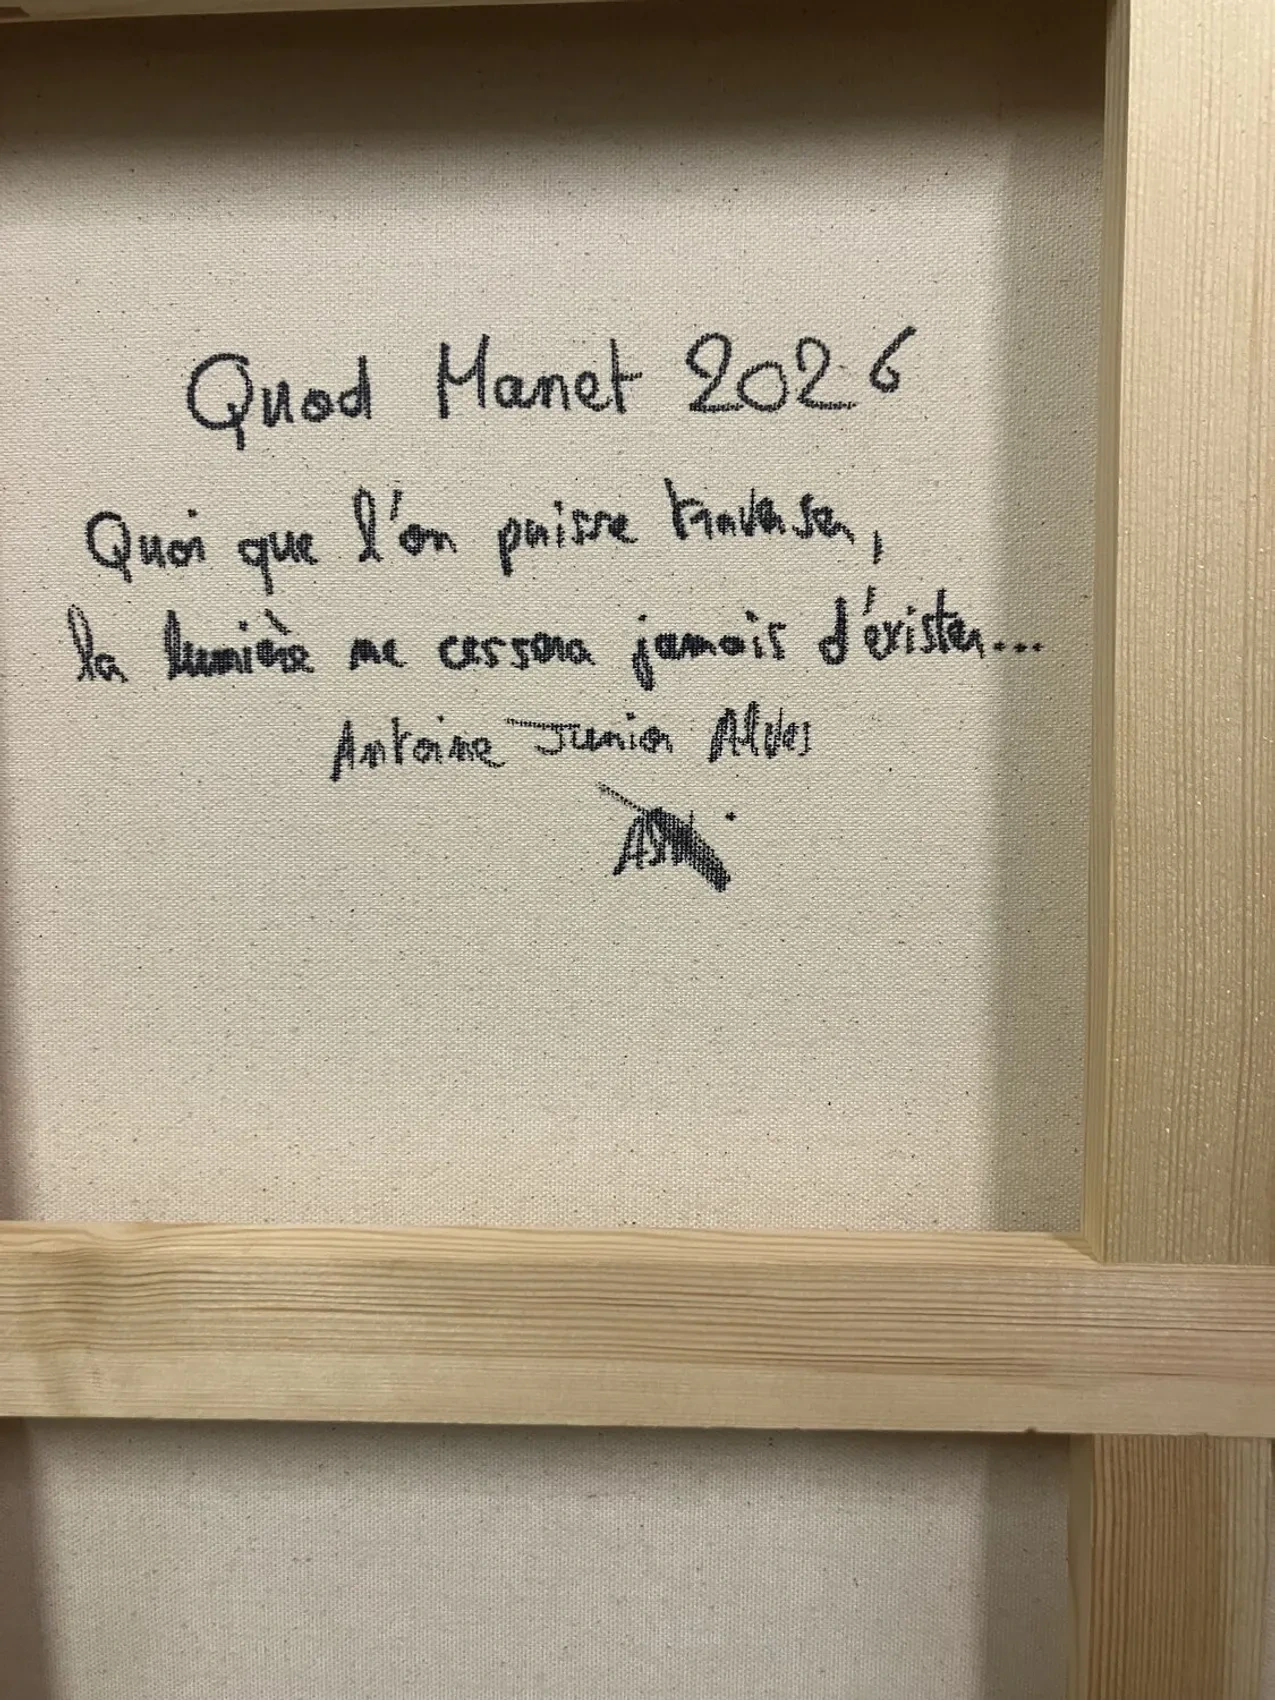 Quod Manet 2026
Quoi que l'on puisse traverser,
la lumière ne cessera jamais d'éxister...
Antoine Junior Alves